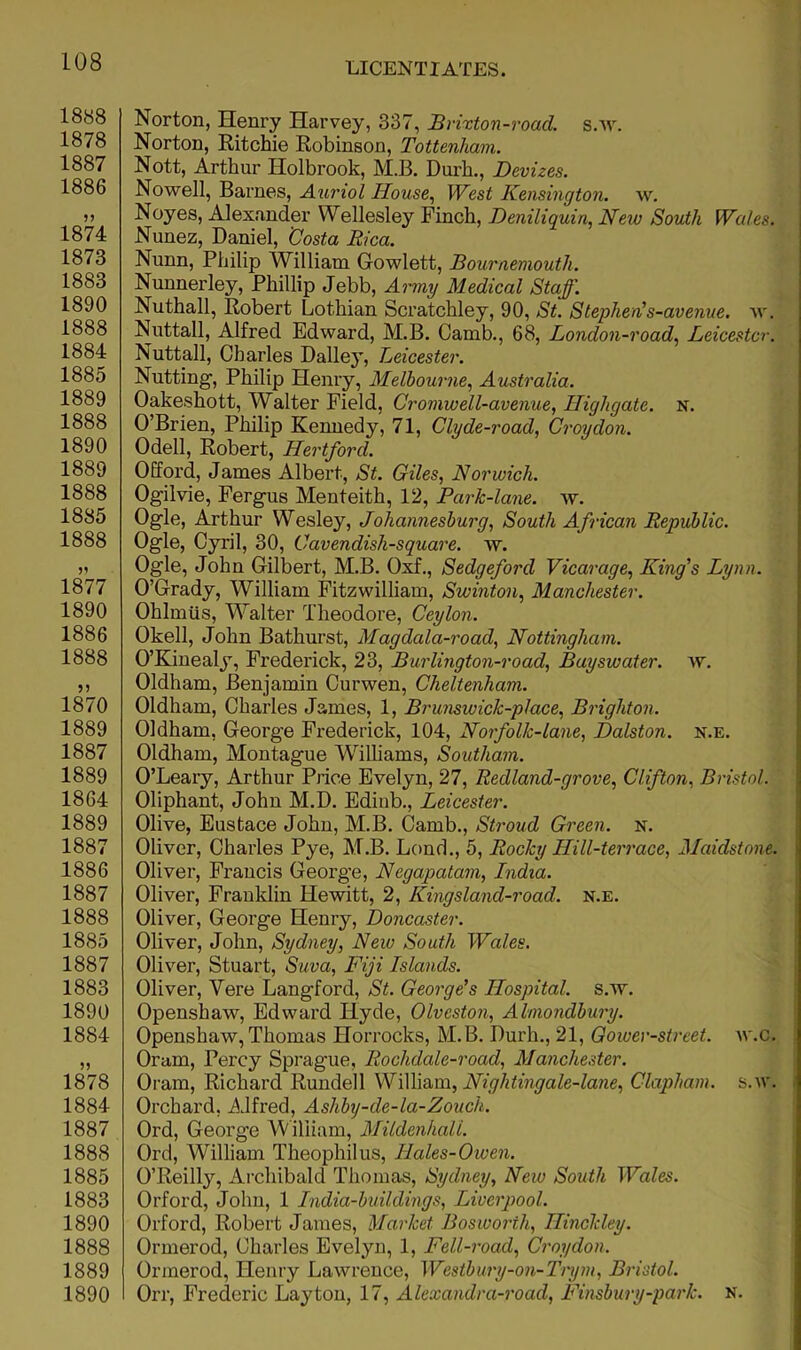 108
LICENTIATES.
1888 Norton, Henry Harvey, 337, Brixton-road. s.w.
1878 Norton, Ritchie Robinson, Tottenham.
1887 Nott, Arthur Holbrook, M.B. Durh., Devizes.
1886 Nowell, Barnes, Auriol House, West Kensington. w.
„ Noyes, Alexander Wellesley Finch, Deniliquin, New South Wales.
1874 Nunez, Daniel, Costa Rica.
1873 Nunn, Philip William Gowlett, Bournemouth.
1883 Nunnerley, Phillip Jebb, Army Medical Staff.
1890 Nuthall, Robert Lothian Scratchley, 90, St. Stephen's-avenue. w.
1888 Nuttall, Alfred Edward, M.B. Camb., 68, London-road, Leicester.
1884 Nuttall, Charles Dalley, Leicester.
1885 Nutting, Philip Henry, Melbourne, Australia.
1889 Oakeshott, Walter Field, Cromwell-avenue, Highgate. N.
1888 O'Brien, Philip Kennedy, 71, Clyde-road, Croydon.
1890 Odell, Robert, Hertford.
1889 Offord, James Albert, St. Giles, Norwich.
1888 Ogilvie, Fergus Menteith, 12, Park-lane. w.
1885 Ogle, Arthur Wesley, Johannesburg, South African Republic.
1888 Ogle, Cyril, 30, Cavendish-square. w.
„ Ogle, John Gilbert, M.B. Oxf., Sedgeford Vicarage, King's Lynn.
1877 O'Grady, William Fitzwilliam, Swinton, Manchester.
1890 Ohlmüs, Walter Theodore, Ceylon.
1886 Okell, John Bathurst, Magdala-road, Nottingham.
1888 O'Kinealy, Frederick, 23, Burlington-road, Bayswater. w.
„ Oldham, Benjamin Curwen, Cheltenham.
1870 Oldham, Charles James, 1, Brunswick-place, Brighton.
1889 Oldham, George Frederick, 104, Norfolk-lane, Dalston. N.E.
1887 Oldham, Montague Williams, Southam.
1889 O'Leary, Arthur Price Evelyn, 27, Redland-grove, Clifton, Bristol.
1864 Oliphant, John M.D. Edinb., Leicester.
1889 Olive, Eustace John, M.B. Camb., Stroud Green. N.
1887 Oliver, Charles Pye, M.B. Lond., 5, Rocky Hill-terrace, Maidstone.
1886 Oliver, Francis George, Negapatam, India.
1887 Oliver, Franklin Hewitt, 2, Kingsland-road. N.E.
1888 Oliver, George Henry, Doncaster.
1885 Oliver, John, Sydney, New South Wales.
1887 Oliver, Stuart, Suva, Fiji Islands.
1883 Oliver, Vere Langford, St. George's Hospital. s.w.
1890 Openshaw, Edward Hyde, Olveston, Almondbury.
1884 Openshaw, Thomas Horrocks, M.B. Durh., 21, Gower-street. w.c.
„ Oram, Percy Sprague, Rochdale-road, Manchester.
1878 Oram, Richard Rundell William, Nightingale-lane, Clapham. s.w.
1884 Orchard, Alfred, Ashby-de-la-Zouch.
1887 Ord, George William, Mildenhall.
1888 Ord, William Theophilus, Hales-Owen.
1885 O'Reilly, Archibald Thomas, Sydney, New South Wales.
1883 Orford, John, 1 India-buildings, Liverpool.
1890 Orford, Robert James, Market Bosworth, Hinckley.
1888 Ormerod, Charles Evelyn, 1, Fell-road, Croydon.
1889 Ormerod, Henry Lawrence, Westbury-on-Trym, Bristol.
1890 Orr, Frederic Layton, 17, Alexandra-road, Finsbury-park. N.